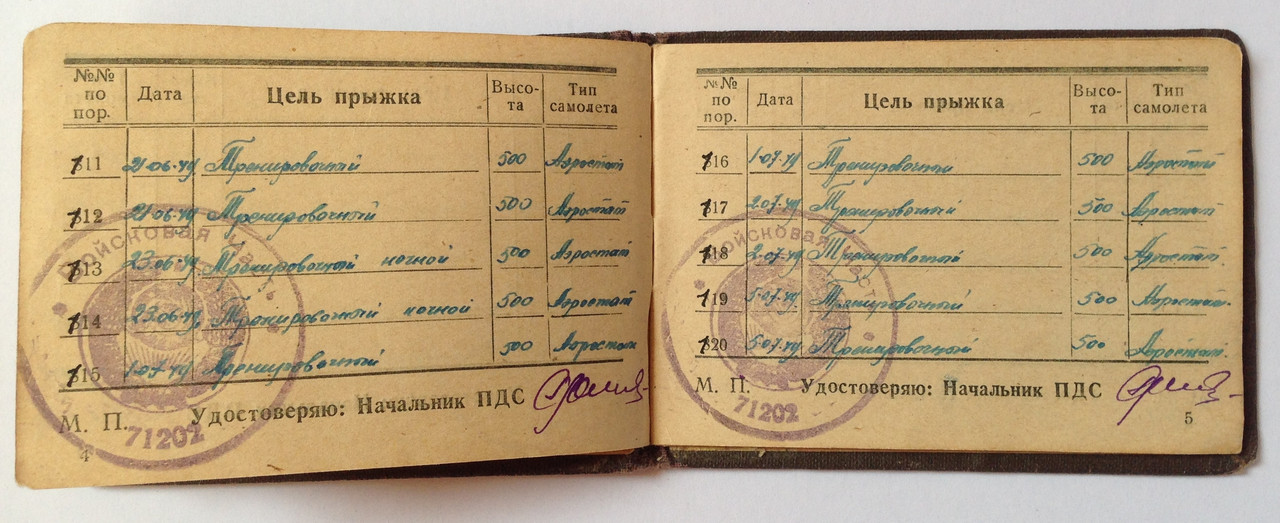 №№ по пор. Дата Цель прыжка Высо-та Тип самолета
11 21-06-49 Тренировочный 500 Аэростат
12 21-06-49 Тренировочный 500 Аэростат
13 23.06-49 Тренировочный ночной 500 Аэростат
14 23.06-49 Тренировочный ночной 500 Аэростат
15 1-07-49 Тренировочный 500 Аэростат
М. П. Удостоверяю: Начальник ПДС
Войсковая часть
71202
4
№№ по пор. Дата Цель прыжка Высо-та Тип самолета
16 1-07-49 Тренировочный 500 Аэростат
17 2-07-49 Тренировочный 500 Аэростат
18 2-07-49 Тренировочный 500 Аэростат
19 5-07-49 Тренировочный 500 Аэростат
20 5-07-49 Тренировочный 500 Аэростат
М. П. Удостоверяю: Начальник ПДС
Войсковая часть
71202
5